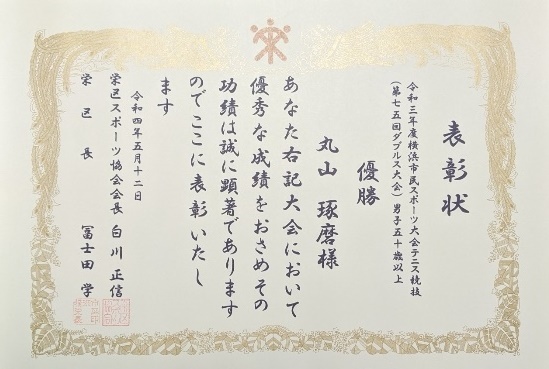 表彰状
令和三年度横浜市民スポーツ大会テニス競技
（第七五回ダブルス大会）男子五十歳以上
優勝
丸山 琢磨様
あなた右記大会において
優秀な成績をおさめその
功績は誠に顕著であります
のでここに表彰いたし
ます
令和四年五月十二日
栄区スポーツ協会会長 白川 正信
栄区長 冨士田 学